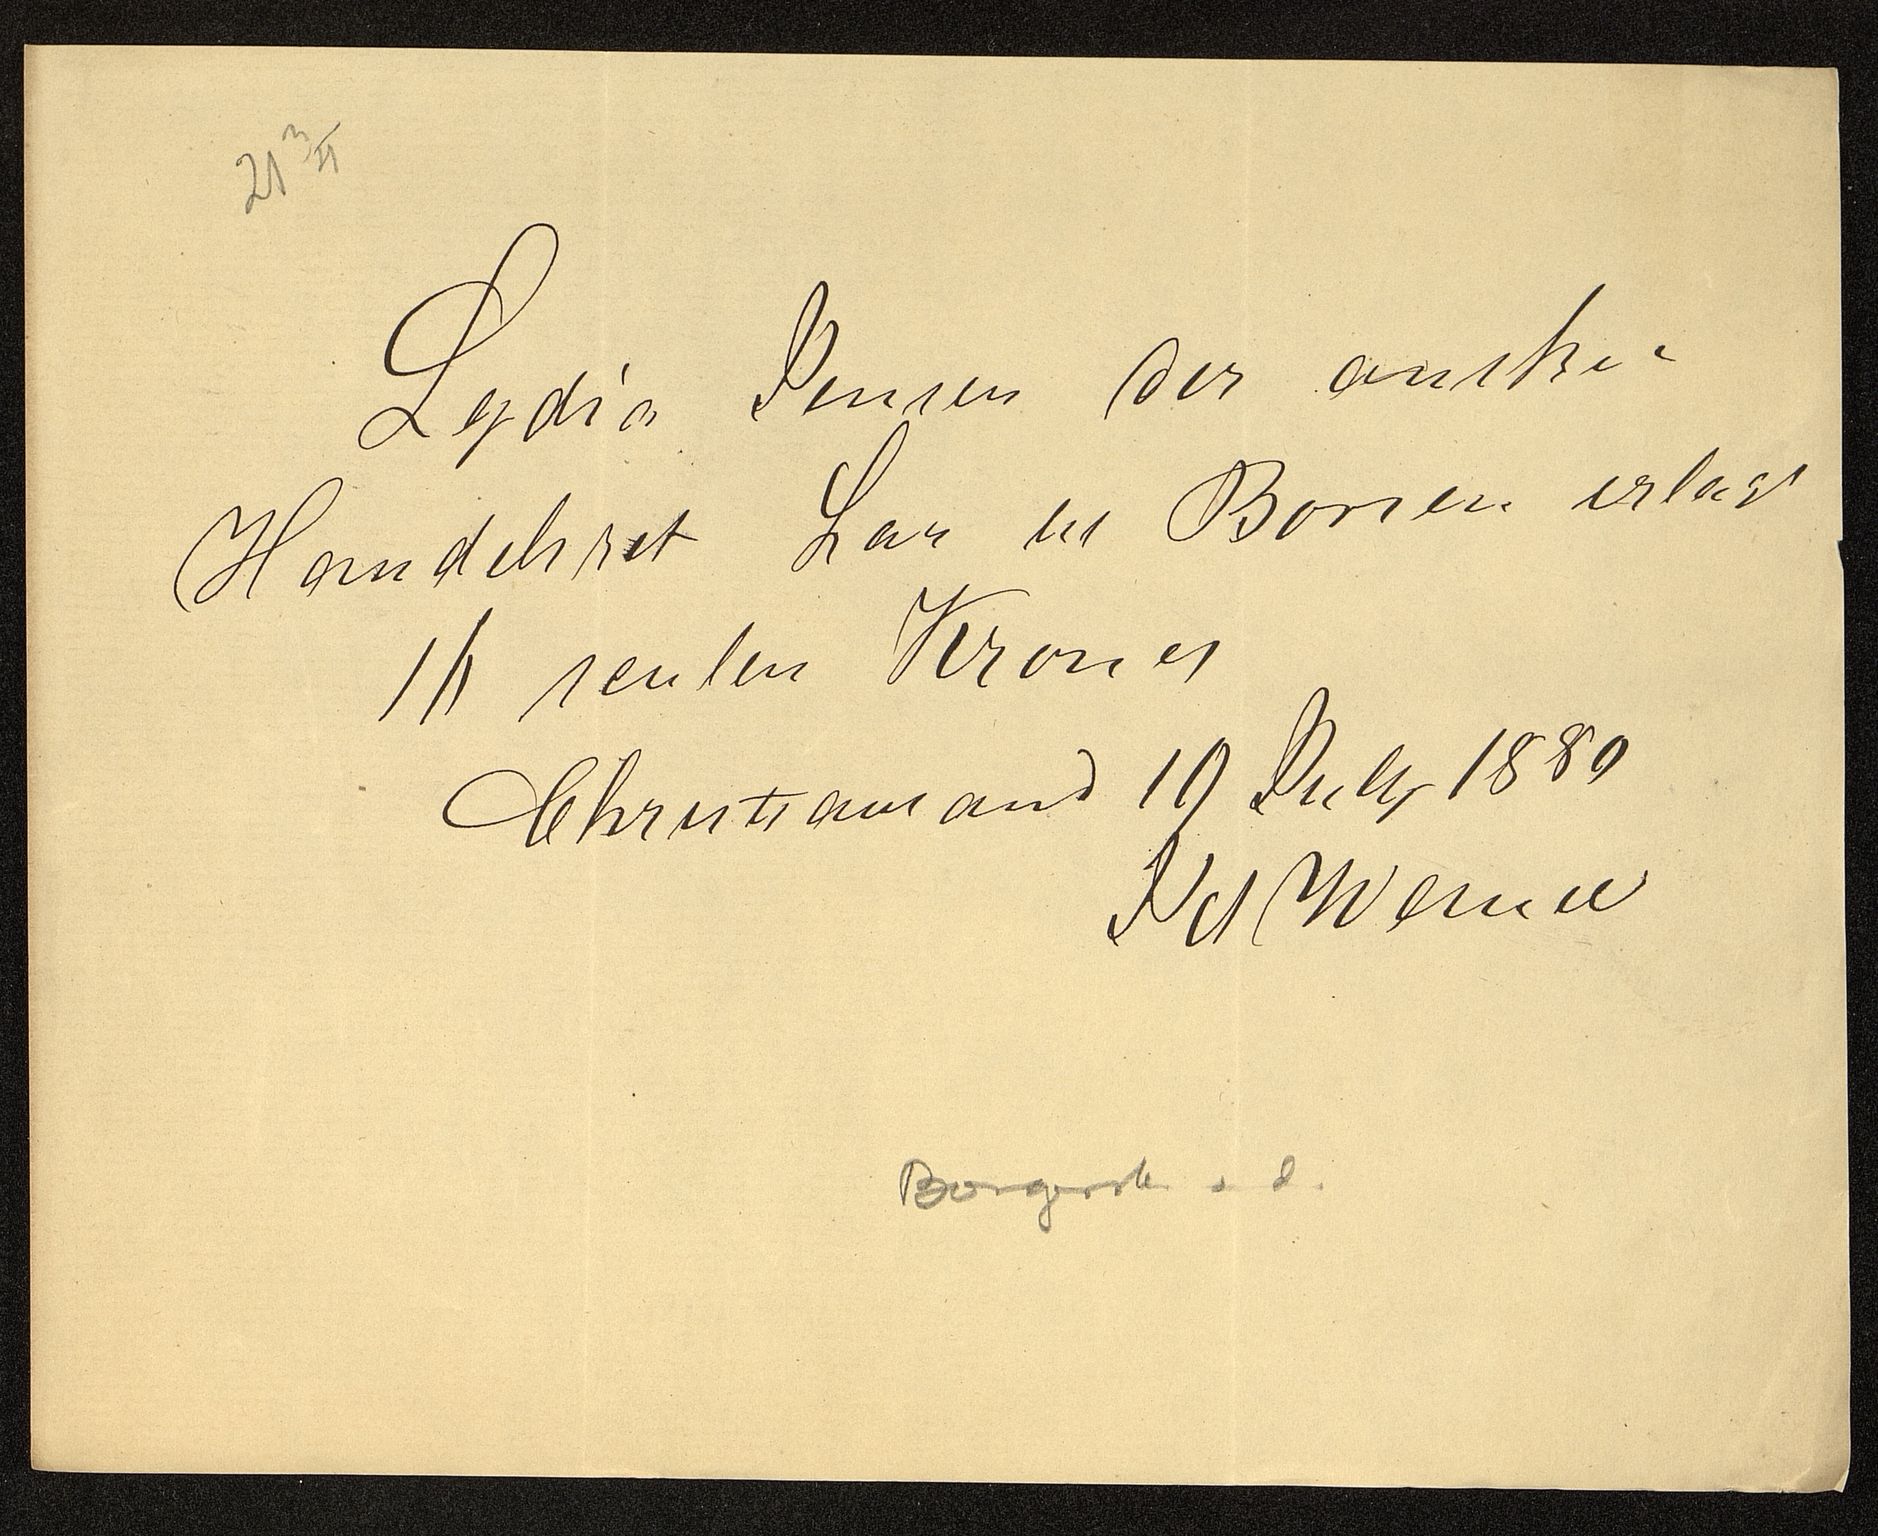 Lydia Jensen der ønsker
Handelsret har til Børsen erlagt
16 sexten Kroner
Christiansand 19 July 1880
Werner
Borgersk